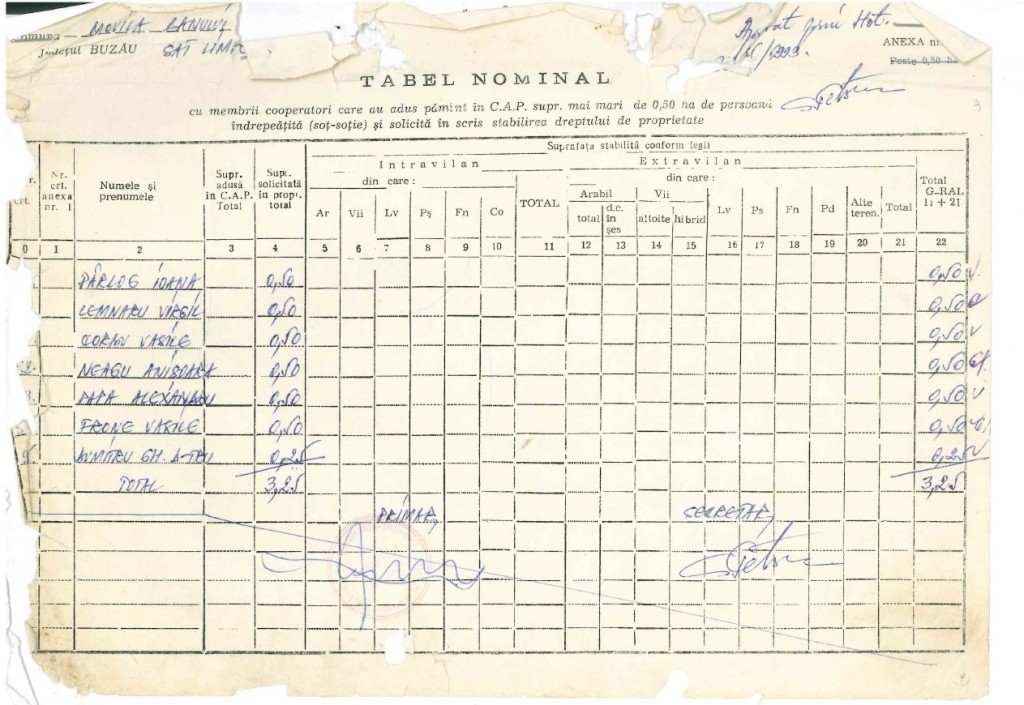 MOVILA BANULUI
Județul BUZĂU SAT LIMP
ANEXA nr.
Peste 0,50 ha
TABEL NOMINAL
cu membrii cooperatori care au adus pămînt în C.A.P. supr. mai mari de 0,50 ha de persoană
îndrepețită (soț-soție) și solicită în scris stabilirea dreptului de proprietate
3
Suprafața stabilită conform legii
Intravilan Extravilan
din care : din care :
Nr. crt. anexa nr. 1 Numele și prenumele Supr. adusă în C.A.P. Total Supr. solicitată în propr. total Ar Vii Lv Pș Fn Co TOTAL Arabil total d.c. în șes Vii altoite hibrid Lv Ps Fn Pd Alte teren. Total Total G-RAL 11 + 21
0 1 2 3 4 5 6 7 8 9 10 11 12 13 14 15 16 17 18 19 20 21 22
PÂRLOG IOANA 0,50 0,50
LEMNARU VIRGIL 0,50 0,50
VASILE 0,50 0,50
NEAGU ANIȘOARA 0,50 0,50
PAPA ALEXANDRU 0,50 0,50
FRONE VASILE 0,50 0,50
DUMITRU GH. 0,25 0,25
TOTAL 3,25 3,25
PRIMAR, SECRETAR,